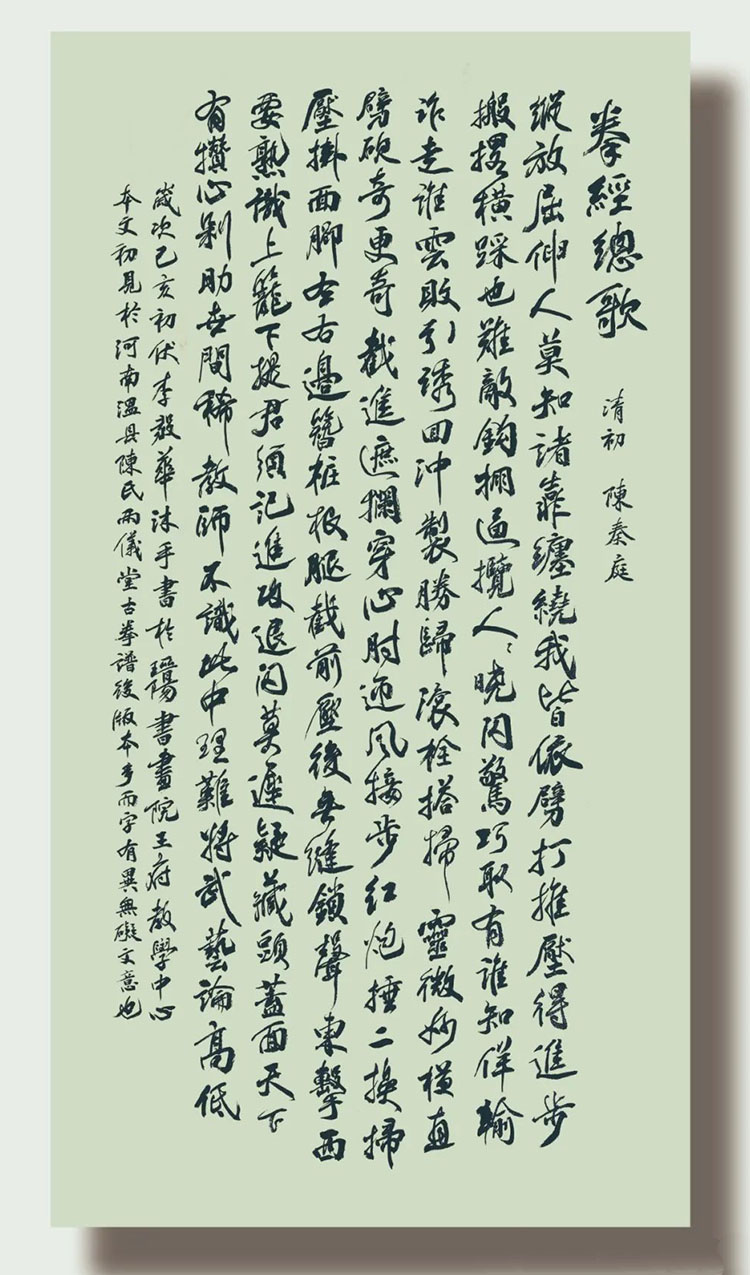 拳經總歌
清初 陳奏庭
縱放屈伸人莫知諸靠纏繞我皆依劈打推壓得進步
搬撂橫踩也難敵鉤掤逼攬人人曉閃驚巧取有誰知佯輸
詐走誰雲敗引誘回沖製勝歸滾栓搭掃靈微妙橫直
劈砍奇更奇截進遮攔穿心肘迎風接步紅炮捶二換掃
壓掛面腳左右邊簪桩根腿截前壓後無縫鎖聲東擊西
要熟識上籠下提君須記進攻退閃莫遲疑藏頭蓋面天下
有攢心剁肋世間稀教師不識此中理難將武藝論高低
歲次己亥初伏李毅華沐手書於書畫院王府教學中心
本文初見於河南溫縣陳氏兩儀堂古拳譜後版本多而字有異無礙文意也